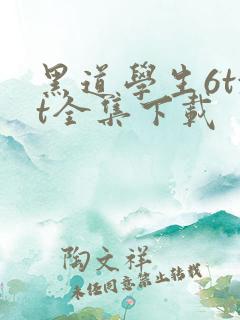 黑道學生6tx
t全集下載
陶文祥
未经同意禁止转载